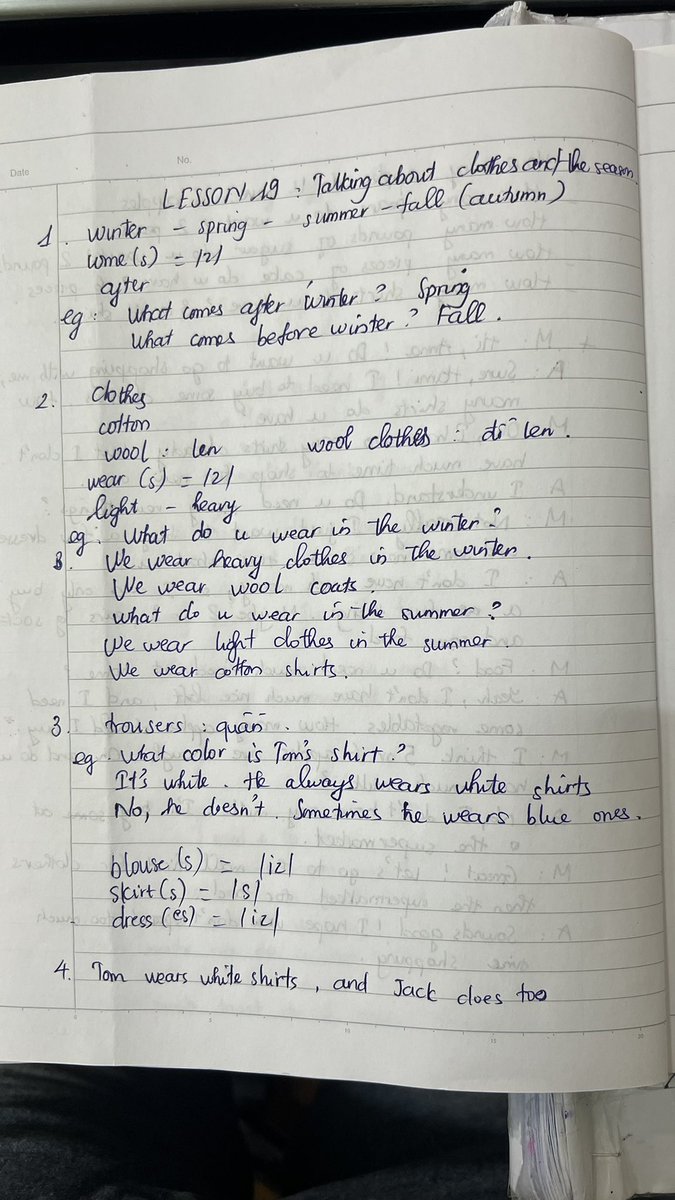 Date
No.
LESSON 19 : Talking about clothes and the season
1. winter - spring - summer - fall (autumn)
come(s) = /z/
after
eg : What comes after winter? Spring
What comes before winter? Fall.
2. clothes
cotton
wool : len wool clothes : đồ len.
wear (s) = /z/
light - heavy
eg. What do u wear in the winter?
B. We wear heavy clothes in the winter.
We wear wool coats.
What do u wear in the summer?
We wear light clothes in the summer.
We wear cotton shirts.
3. trousers : quần.
eg. What color is Tom's shirt?
It's white. He always wears white shirts
No, he doesn't. Sometimes he wears blue ones.
blouse (s) = /iz/
skirt (s) = /s/
dress (es) = /iz/
4. Tom wears white shirts, and Jack does too
5 10 15 20